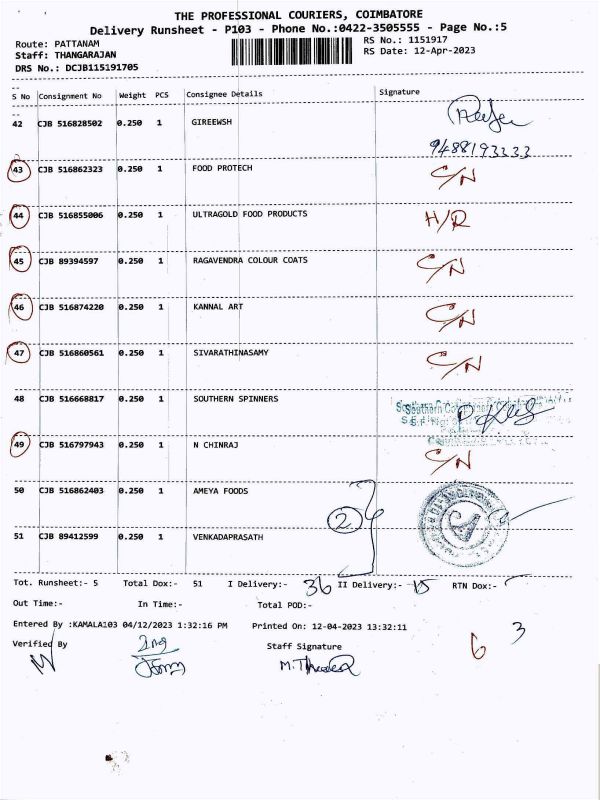 THE PROFESSIONAL COURIERS, COIMBATORE
Delivery Runsheet - P103 - Phone No.:0422-3505555 - Page No.:5
Route: PATTANAM
RS No.: 1151917
Staff: THANGARAJAN
RS Date: 12-Apr-2023
DRS No.: DCJB115191705
S No Consignment No Weight PCS Consignee Details Signature
42 CJB 516828502 0.250 1 GIREEWSH
9488193333
43 CJB 516862323 0.250 1 FOOD PROTECH C/N
44 CJB 516855006 0.250 1 ULTRAGOLD FOOD PRODUCTS H/R
45 CJB 89394597 0.250 1 RAGAVENDRA COLOUR COATS C/N
46 CJB 516874220 0.250 1 KANNAL ART C/N
47 CJB 516860561 0.250 1 SIVARATHINASAMY C/N
48 CJB 516668817 0.250 1 SOUTHERN SPINNERS
49 CJB 516797943 0.250 1 N CHINRAJ C/N
50 CJB 516862403 0.250 1 AMEYA FOODS
2
51 CJB 89412599 0.250 1 VENKADAPRASATH
Tot. Runsheet:- 5 Total Dox:- 51 I Delivery:- 36 II Delivery:- 15 RTN Dox:-
Out Time:- In Time:- Total POD:-
Entered By :KAMALA103 04/12/2023 1:32:16 PM Printed On: 12-04-2023 13:32:11
6 3
Verified By Staff Signature